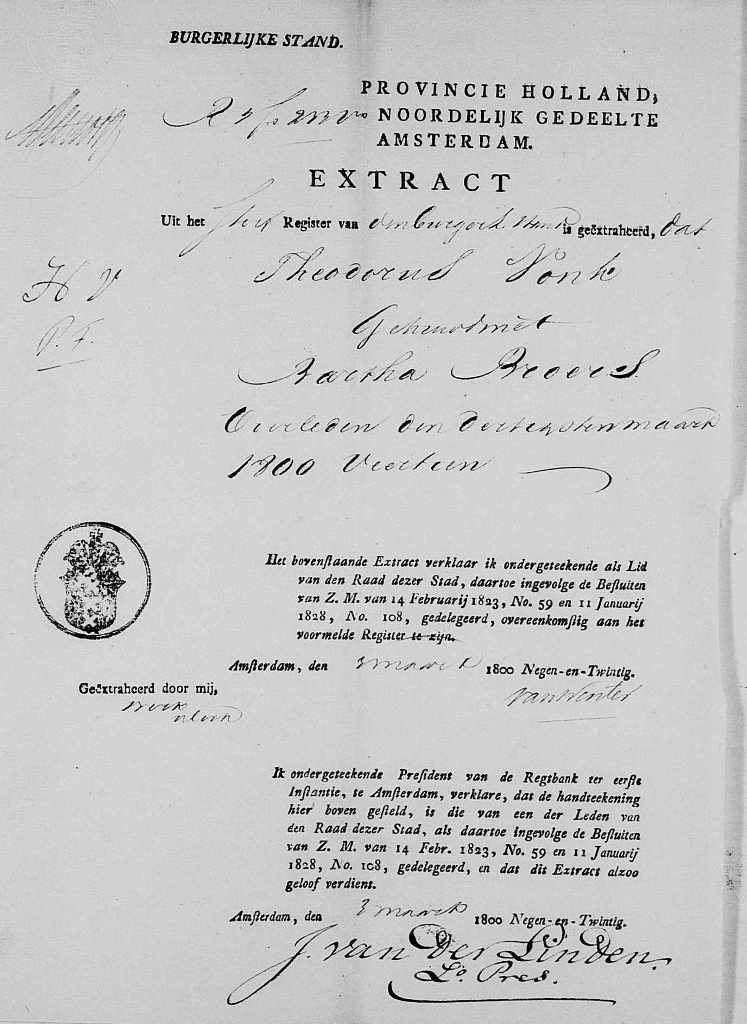 BURGERLIJKE STAND.
PROVINCIE HOLLAND,
R 3 fo 213 vo NOORDELIJK GEDEELTE
AMSTERDAM.
EXTRACT
Uit het Sterf Register van den Burgerl. Stand is geëxtraheerd, dat
Theodorus Vonk
H V
Gehuwd met
P. F.
Bartha Broers
Overleden den dertigsten maart
1800 Veertien
Het bovenstaande Extract verklaar ik ondergeteekende als Lid
van den Raad dezer Stad, daartoe ingevolge de Besluiten
van Z. M. van 14 Februarij 1823, No. 59 en 11 Januarij
1828, No. 108, gedelegeerd, overeenkomstig aan het
voormelde Register te zijn.
Amsterdam, den 3 maart 1800 Negen-en-Twintig.
Geëxtraheerd door mij,
van Winter
Ik ondergeteekende President van de Regtbank ter eerste
Instantie, te Amsterdam, verklare, dat de handteekening
hier boven gesteld, is die van een der Leden van
den Raad dezer Stad, als daartoe ingevolge de Besluiten
van Z. M. van 14 Febr. 1823, No. 59 en 11 Januarij
1828, No. 108, gedelegeerd, en dat dit Extract alzoo
geloof verdient.
Amsterdam, den 3 maart 1800 Negen-en-Twintig.
J. van der Linden.
Lo. Pres.